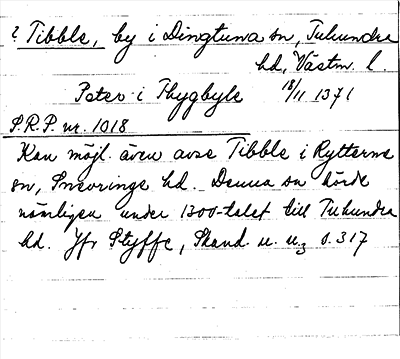 ? Tibble, by i Dingtuna sn, Tuhundra
hd, Västm. l.
Peter i Thygbyle 18/11 1371
S.R.P. nr. 1018
Kan möjl. även avse Tibble i Rytterne
sn, Snevringe hd. Denna sn hörde
nämligen under 1300-talet till Tuhundra
hd. Jfr Styffe, Skand. u. u., s. 317